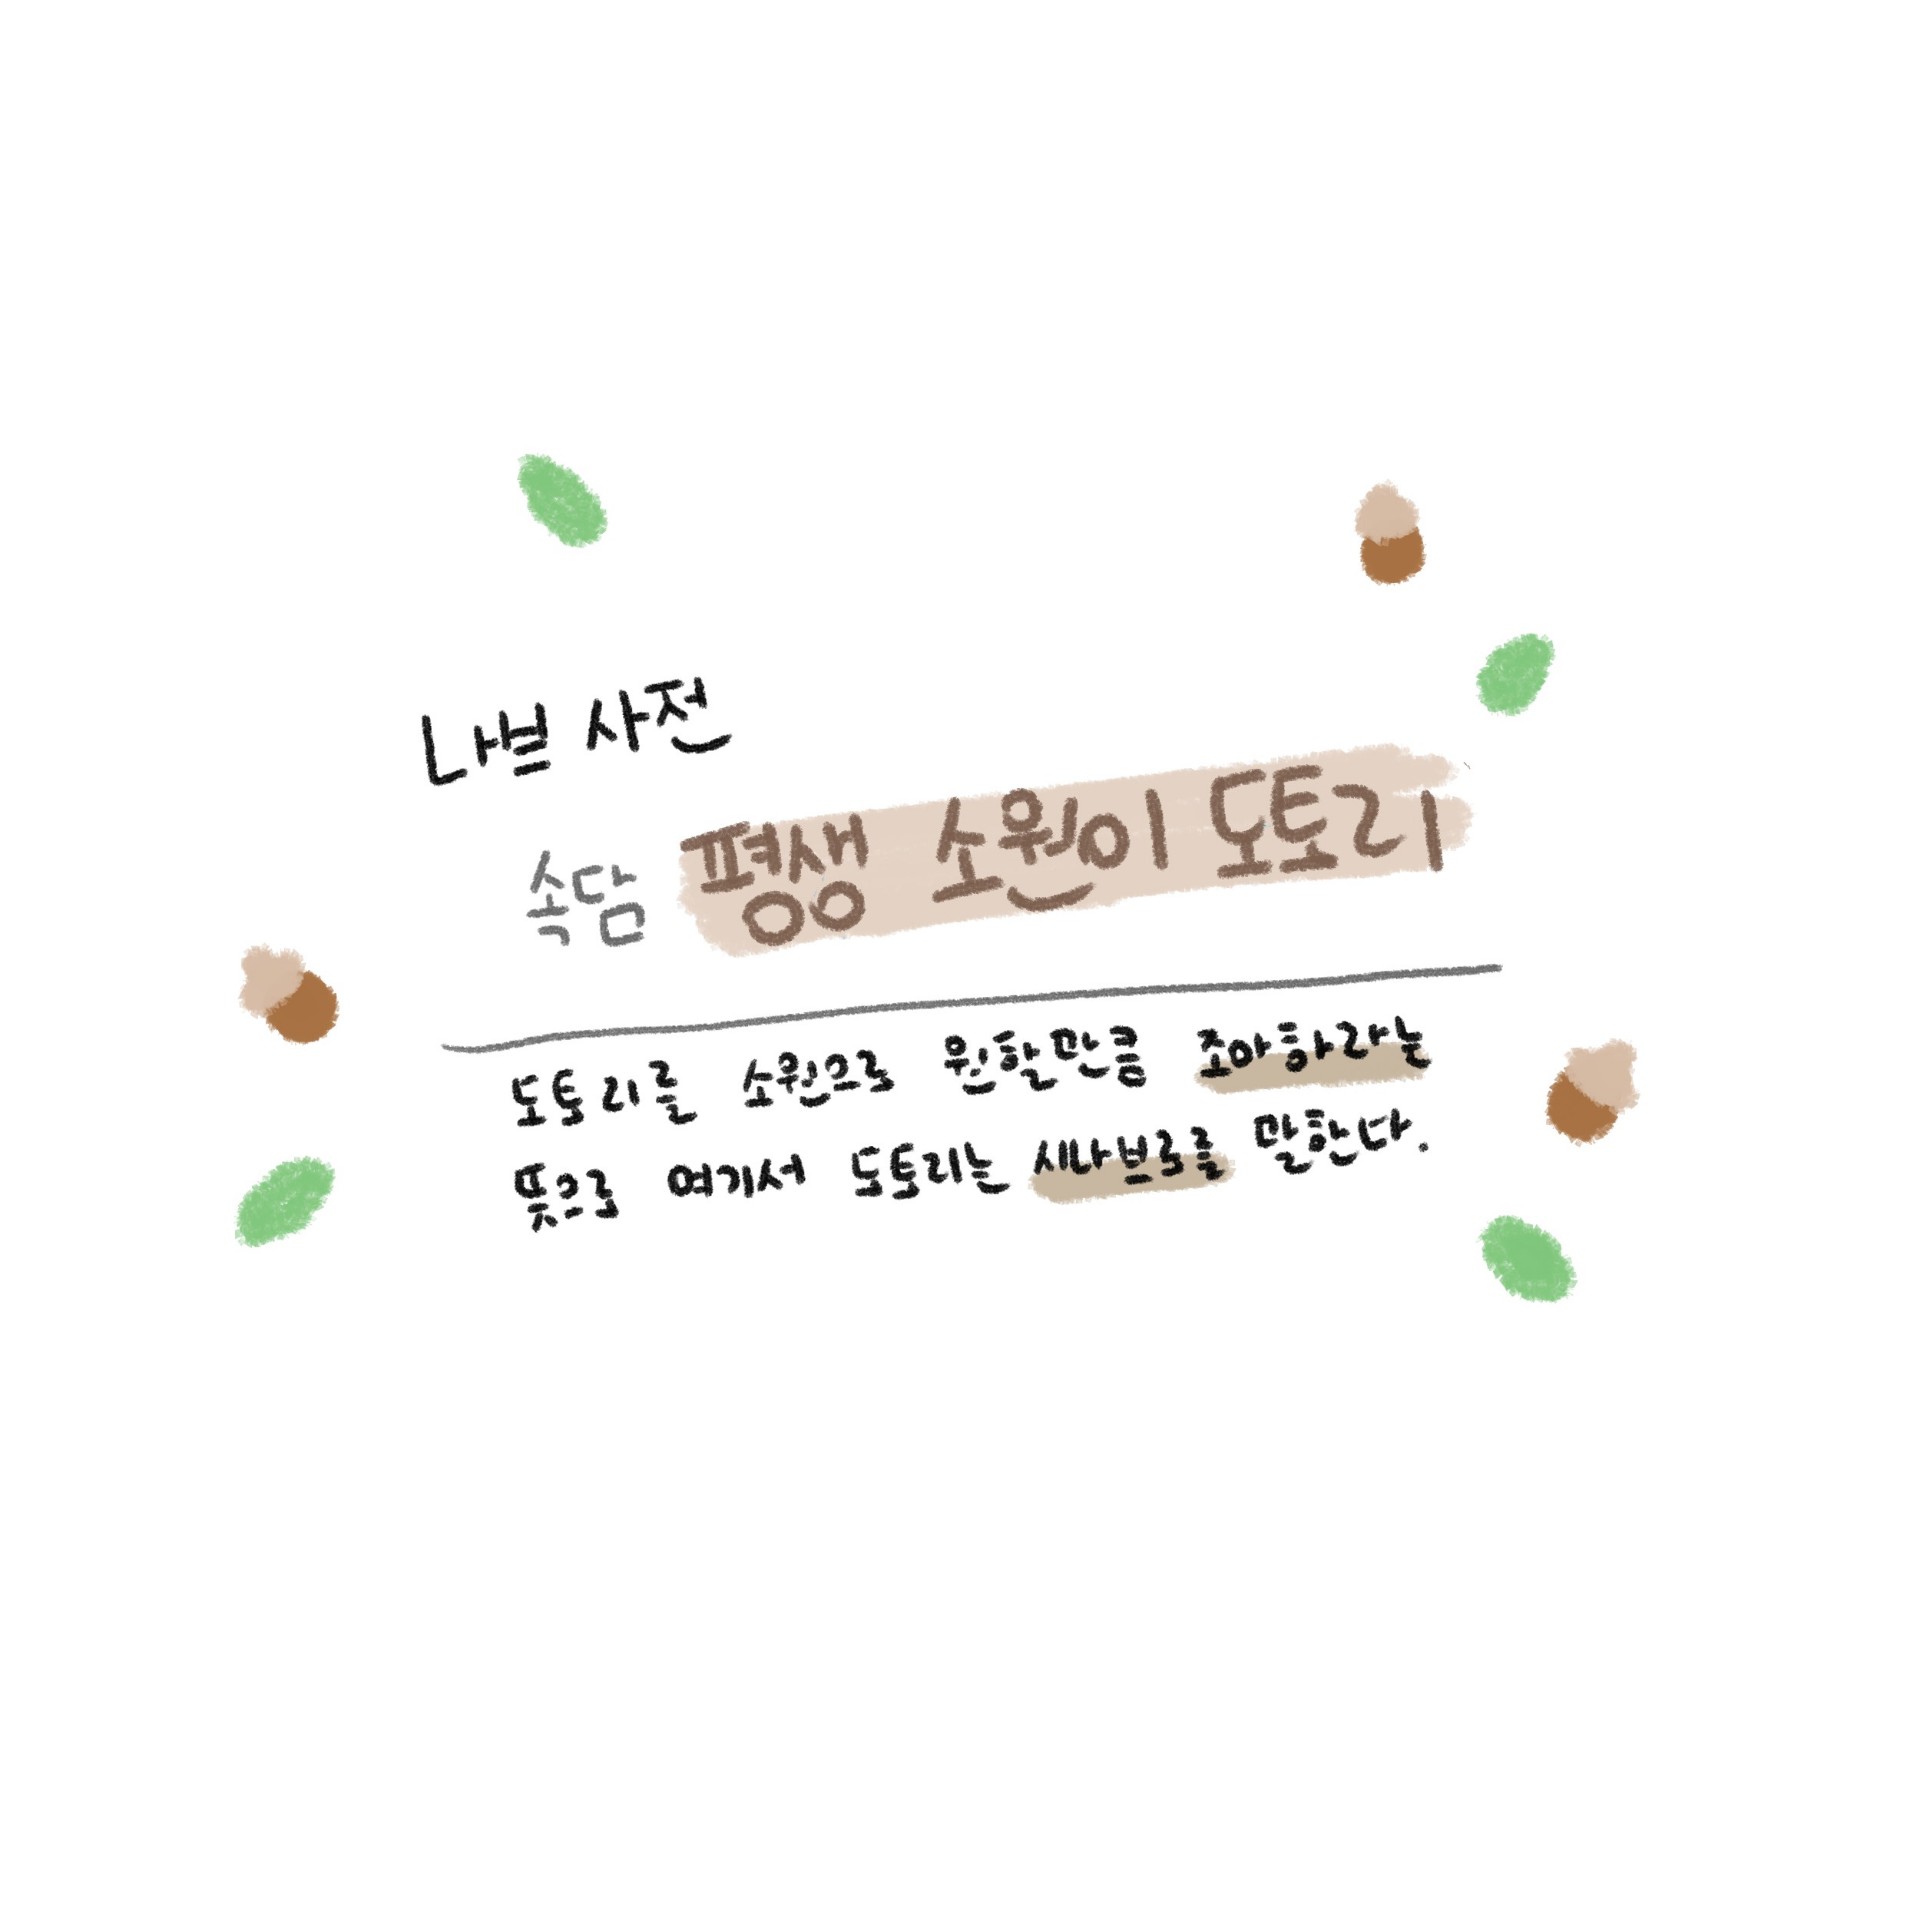 나브 사전
속담 평생 소원이 도토리
도토리를 소원으로 원할만큼 조아하라는
뜻으로 여기서 도토리는 시나브로를 말한다.